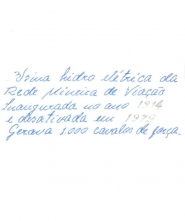 Usina hidro elétrica da
Rede Mineira de Viação
Inaugurada no ano
e desativada em
Gerava 1000 cavalos de força.